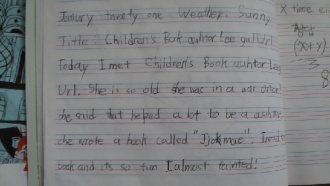 Janury twenty one Weather: Sunny
Title: Children's Book auhtor Lee ga Url
Today I met Children's Book auhtor Lee
Url. She is so old she was in a war once!
she said that helped a lot to be a
she wrote a book called "Jjokmae" I read
book and its so fun I almost fainted!
X time
(X+Y)
3
8